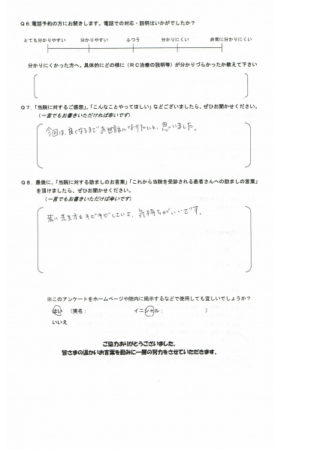 Q6.電話予約の方にお聞きします。電話での対応・説明はいかがでしたか?
とても分かりやすい 分かりやすい ふつう 分かりにくい 非常に分かりにくい
分かりにくかった方へ、具体的にどの様に(RC治療の説明等)が分かりづらかったか教えて下さい
Q7.「当院に対するご感想」、「こんなことやってほしい」などございましたら、ぜひお聞かせください。
(一言でもお書きいただければ幸いです)
今回は、良くなるまでお世話になりたいと、思いました。
Q8.最後に、「当院に対する励ましのお言葉」「これから当院を受診される患者さんへの励ましの言葉」
を頂けましたら、ぜひお聞かせください。
(一言でもお書きいただけば幸いです)
若い先生方もキビキビしていて、気持ちがいいです。
※このアンケートをホームページや院内に掲示するなどで使用しても宜しいでしょうか?
はい (実名: イニシャル: )
いいえ
ご協力ありがとうございました。
皆さまの温かいお言葉を励みに一層の努力をさせていただきます。